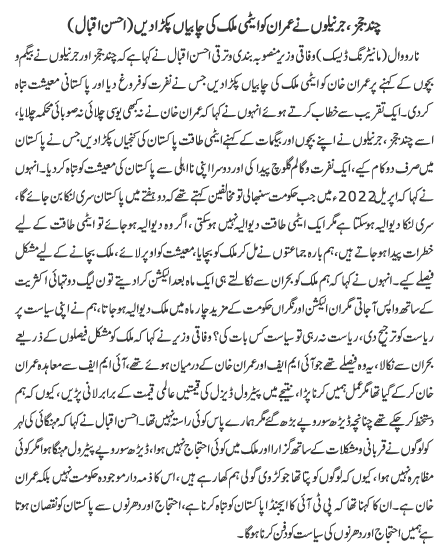 چند ججز، جرنیلوں نے عمران کو ایٹمی ملک کی چابیاں پکڑا دیں (احسن اقبال)
نارووال (مانیٹرنگ ڈیسک) وفاقی وزیر منصوبہ بندی و ترقی احسن اقبال نے کہا ہے کہ چند ججز اور جرنیلوں نے بیگم و
بچوں کے کہنے پر عمران خان کو ایٹمی ملک کی چابیاں پکڑا دیں جس نے نفرت کو فروغ دیا اور پاکستانی معیشت تباہ
کر دی۔ ایک تقریب سے خطاب کرتے ہوئے انہوں نے کہا کہ عمران خان نے نہ کبھی یوسی چلائی نہ صوبائی محکمہ چلایا،
اسے چند ججز، جرنیلوں نے اپنے بچوں اور بیگمات کے کہنے ایٹمی طاقت پاکستان کی چابیاں پکڑا دیں جس نے پاکستان
میں صرف دو کام کیے، ایک نفرت و گالم گلوچ پیدا کی اور دوسرا اپنی نااہلی سے پاکستان کی معیشت کو تباہ کر دیا۔ انہوں
نے کہا کہ اپریل 2022ء میں جب حکومت سنبھالی تو مخالفین کہتے تھے کہ دو ہفتے میں پاکستان سری لنکا بن جائے گا،
سری لنکا دیوالیہ ہو سکتا ہے مگر ایک ایٹمی طاقت دیوالیہ نہیں ہو سکتی، اگر وہ دیوالیہ ہو جائے تو ایٹمی طاقت کے لیے
خطرات پیدا ہو جاتے ہیں، ہم بارہ جماعتوں نے مل کر ملک کو بچایا، معیشت کو اوپر لائے، ملک بچانے کے لیے مشکل
فیصلے کیے۔ انہوں نے کہا کہ ہم ملک کو بحران سے نکالتے ہی ایک ماہ بعد الیکشن کرا دیتے تو ن لیگ دو تہائی اکثریت
کے ساتھ واپس آ جاتی مگر ان الیکشن اور نگراں حکومت کے مزید چار ماہ میں ملک دیوالیہ ہو جاتا، ہم نے اپنی سیاست پر
ریاست کو ترجیح دی، ریاست نہ رہی تو سیاست کس بات کی؟ وفاقی وزیر نے کہا کہ ملک کو مشکل فیصلوں کے ذریعے
بحران سے نکالا، یہ وہ فیصلے تھے جو آئی ایم ایف اور عمران خان کے درمیان ہوئے تھے، آئی ایم ایف سے معاہدہ عمران
خان کر کے گیا تھا مگر عمل ہمیں کرنا پڑا، نتیجے میں پیٹرول ڈیزل کی قیمتیں عالمی قیمت کے برابر لانی پڑیں، کیوں کہ ہم
دستخط کر چکے تھے چنانچہ ڈیڑھ سو روپے بڑھ گئے مگر ہمارے پاس کوئی راستہ نہیں تھا۔ احسن اقبال نے کہا کہ مہنگائی کی لہر
کو لوگوں نے قربانی و مشکلات کے ساتھ گزارا اور ملک میں کوئی احتجاج نہیں ہوا، ڈیڑھ سو روپے پیٹرول مہنگا ہوا مگر کوئی
مظاہرہ نہیں ہوا، کیوں کہ لوگوں کو پتا تھا جو کڑوی گولی ہم کھا رہے ہیں، اس کا ذمہ دار موجودہ حکومت نہیں بلکہ عمران
خان ہے۔ ان کا کہنا تھا کہ پی ٹی آئی کا ایجنڈا پاکستان کو تباہ کرنا ہے، احتجاج اور دھرنوں سے پاکستان کو نقصان ہوتا
ہے ہمیں احتجاج اور دھرنوں کی سیاست کو دفن کرنا ہوگا۔